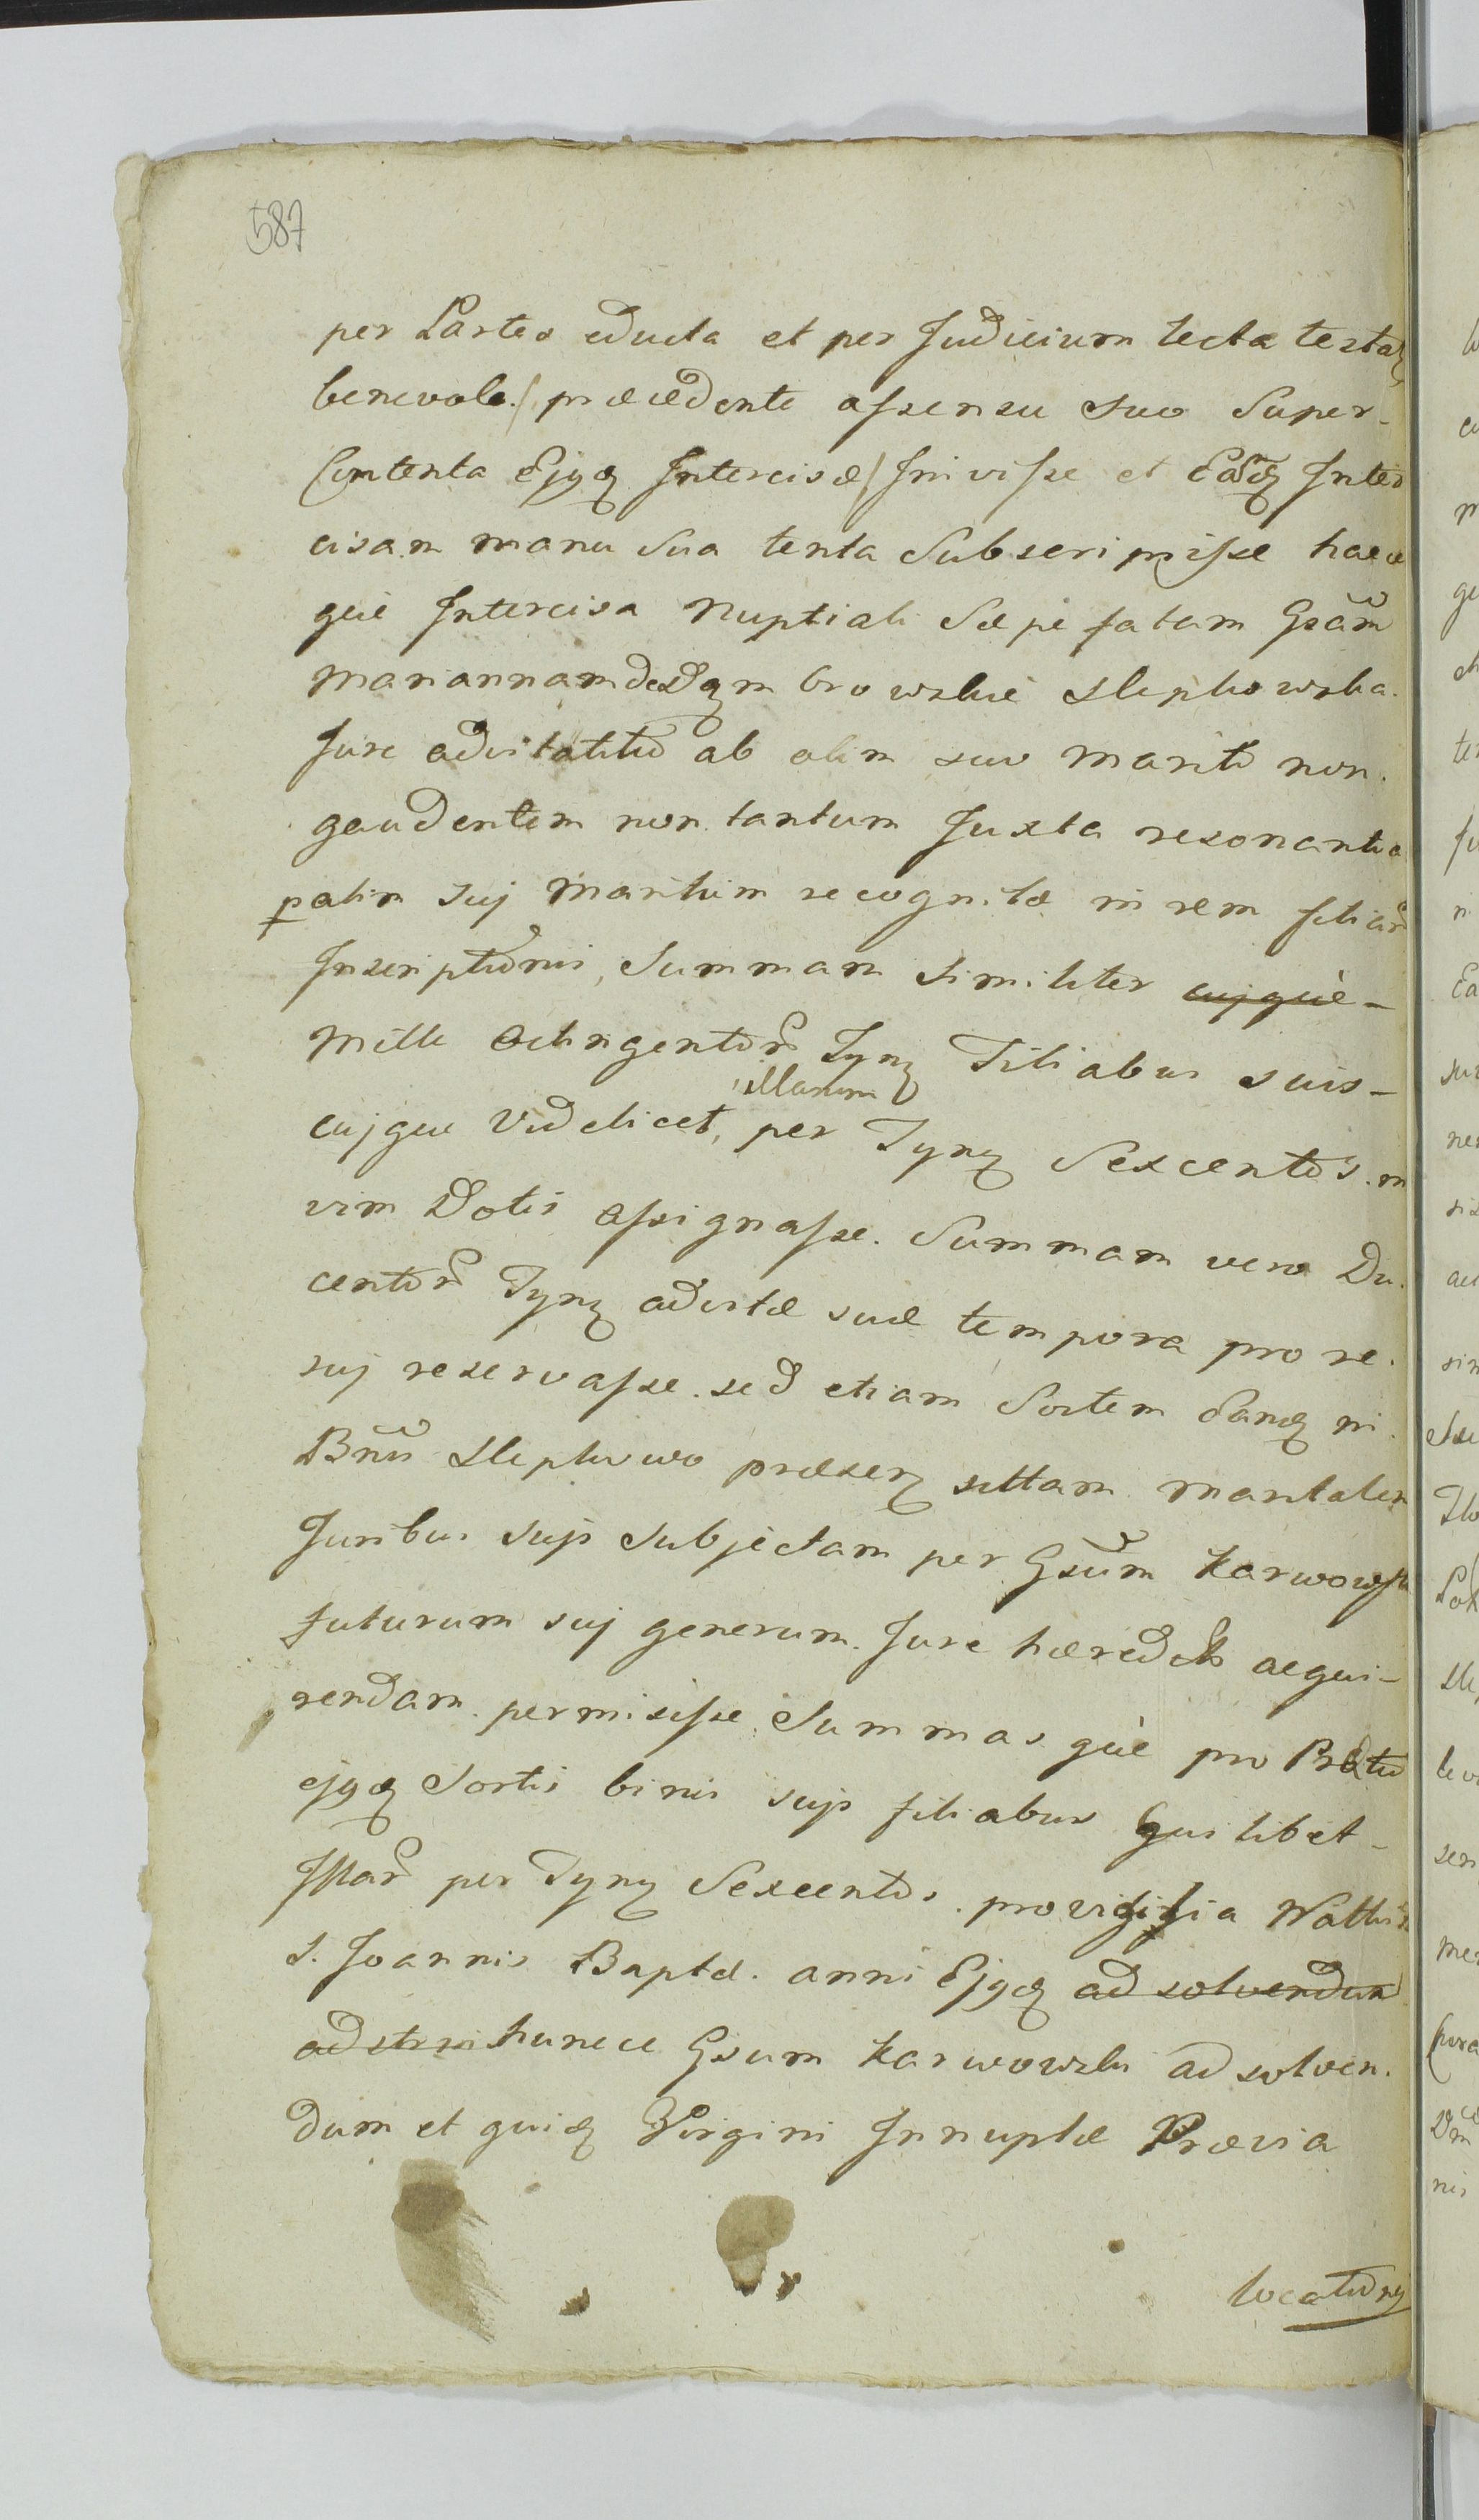 587
per Partes educta et per Judicium lecta
benevole / præcedente assensu suo Super-
Contenta Ejqz Intercisæ / Inivisse et Eadqz Inter
cisam manu sua tenta Subscripsisse haec
que Intercisa Nuptiali Sæpefatam Gsam
Mariannam de Dąmbrowskie Slepkowska.
Jure advitatitio ab olim suo Marito non.
gaudentem non tantum Juxta resonantia
palim suj Maritum recognitæ in rem filiar
Inscriptionis, Summam Similiter cujque-
Mille Octingentor Tynz Filiabus suis-
illarum
cujque Videlicet, per Tynz Sexcentos. in
vim Dotis assignasse. Summam vero Du.
centor Tynz advitæ suæ tempora pro se.
suj reservasse. sed etiam Sortem Eandz in.
Bnis Slepkowo præserz sittam maritalem
Juribus sujs Subjectam per Gsum Karwowski
futurum suj generum. Jure hæreditο acqui-
rendam. permisisse Summas què pro
ejqz Sortis binis sujs filiabus Cuilibet-
Istar per Tynz Sexcentos. pro
S. Joannis Baptæ. anni Ejqz ad solvendum
adstrin hunce Gsum Karwowski ad solven.
dum et Virgini Innuptæ Prævia
locationis